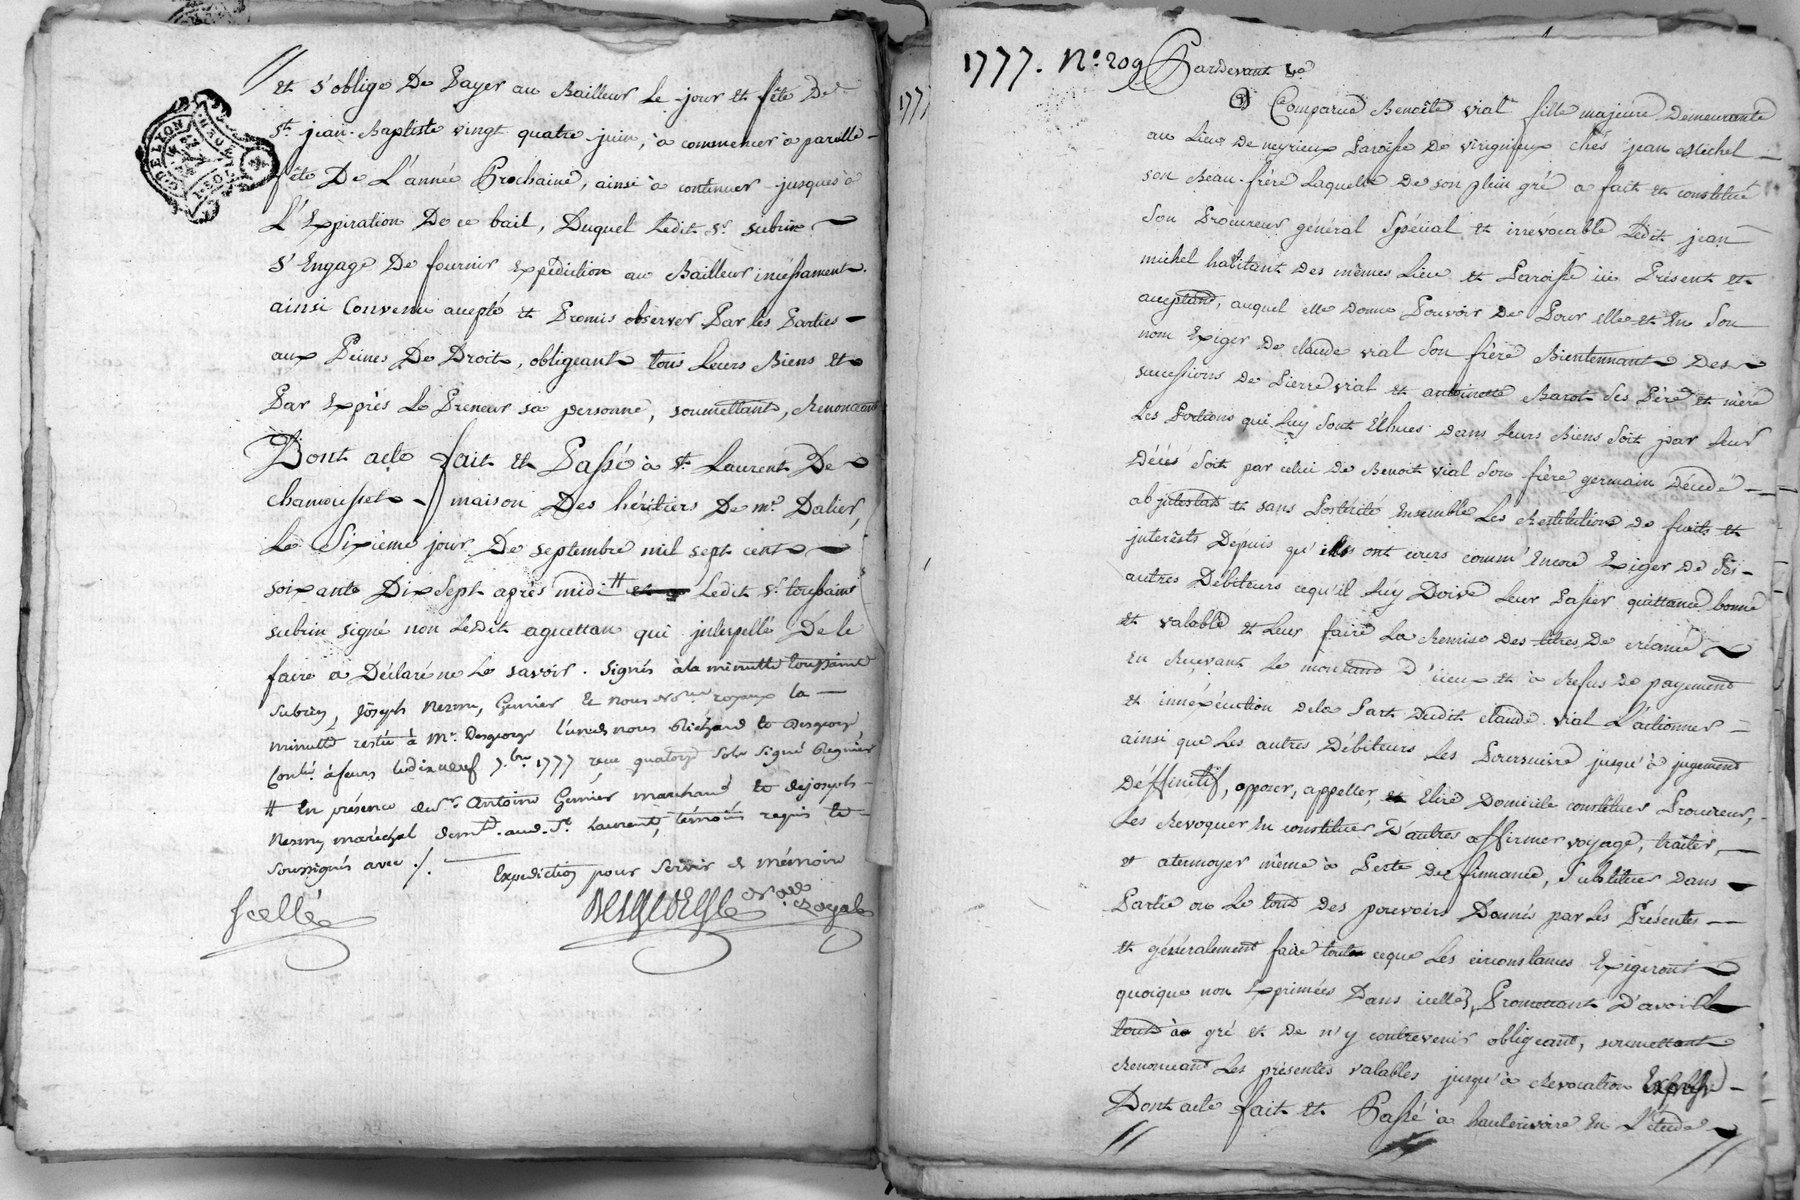 et s'oblige De Payer au Bailleur Le jour et fête De
St. jean-Baptiste vingt quatre juin, à commencer à pareille
fête De L'année Prochaine, ainsi à continuer jusques à
L'Expiration De ce bail, Duquel Ledit Sr. subrin
S'Engage De fournir Expédiction au Bailleur incessament.
ainsi Convenu accepté et Promis observer Par les Parties
aux Peines De Droit, obligeant tous Leurs Biens et
Par Exprès Le Preneur sa personne, soumettant, Renonceant
Dont acte fait et Passé à St. Laurent De
chamousset maison Des héritiers De mr. Dalier,
Le Sixieme jour De septembre mil sept cent
soixante Dix Sept après midi # Ledit Sr. toussaint
subrin signé non Ledit aguettan qui jnterpellé De le
faire a Déclaré ne Le savoir. Signés à la minutte toussaint
Subrin, Joseph Nesmy, Grenier Et nous Nores. royaux la
minutte restée à Me. Desgeorge l'un de nous Richard et Desgeorge
Conlé. à feurs le dix neuf 7.bre 1777 reçu quatorze Sols Signé Regnier
# En présence de Sr. Antoine Grenier marchand et de joseph
Nesmy maréchal demt. aud. St. Laurent, témoins requis et
Soussignés avec ./.
Expediction pour Servir de mémoire
Scellé
Desgeorge Nore. Royal
G. DE LYON
1777. No. 209 Pardevant Le
Comparue Benoîte vial fille majeure Demeurante
au Lieu De neyrieux Paroisse De virignieux chés jean Michel
son Beau-frère Laquelle De son plein gré a fait et constitué
Son Procureur général Spécial et irrévocable Ledit jean
michel habitant Des mêmes Lieu et Paroisse ici Présent et
acceptant, auquel elle Donne Pouvoir De Pour elle et En Son
nom Exiger De claude vial Son frère Bientennant Des
successions De Pierre vial et antoinette Barot Ses Père et mère
Les Portions qui Luy Sont Echues dans Leurs Biens Soit par leur
Décès Soit par celui De Benoit vial Son frère germain Décédé
ab jntestat et sans Postérité Ensemble Les Restitutions de fruits et
jnterêts Depuis qu'ils ont courus comm'Encore Exiger De Ses
autres Débiteurs cequ'il Luy Doive Leur Passer quittance bonne
et valable et Leur faire La Remise Des titres De créance
En Recevant Le montant D'iceux et à Refus De payement
et inexécution dela Part Dudit claude vial L'actionner
ainsi que Les autres Débiteurs Les Poursuivre jusqu'à jugement
Déffinitif, opposer, appeller, Elire Domicile constituer Procureur,
Les Revoquer En constituer D'autres affirmer voyage, traiter,
et atermoyer même à Perte De finnance, Substituer Dans
Partie ou Le tout Des pouvoirs Donnés par Les Présentes
et généralement faire tout ceque Les circonstances Exigeront
quoique non Exprimées Dans icelles, Promettant D'avoir Le
tout à gré et De n'y contrevenir obligeant, soumettant
Renonceant Les présentes valables jusqu'à Revocation Expresse
Dont acte fait et Passé à hauterivoire En L'étude